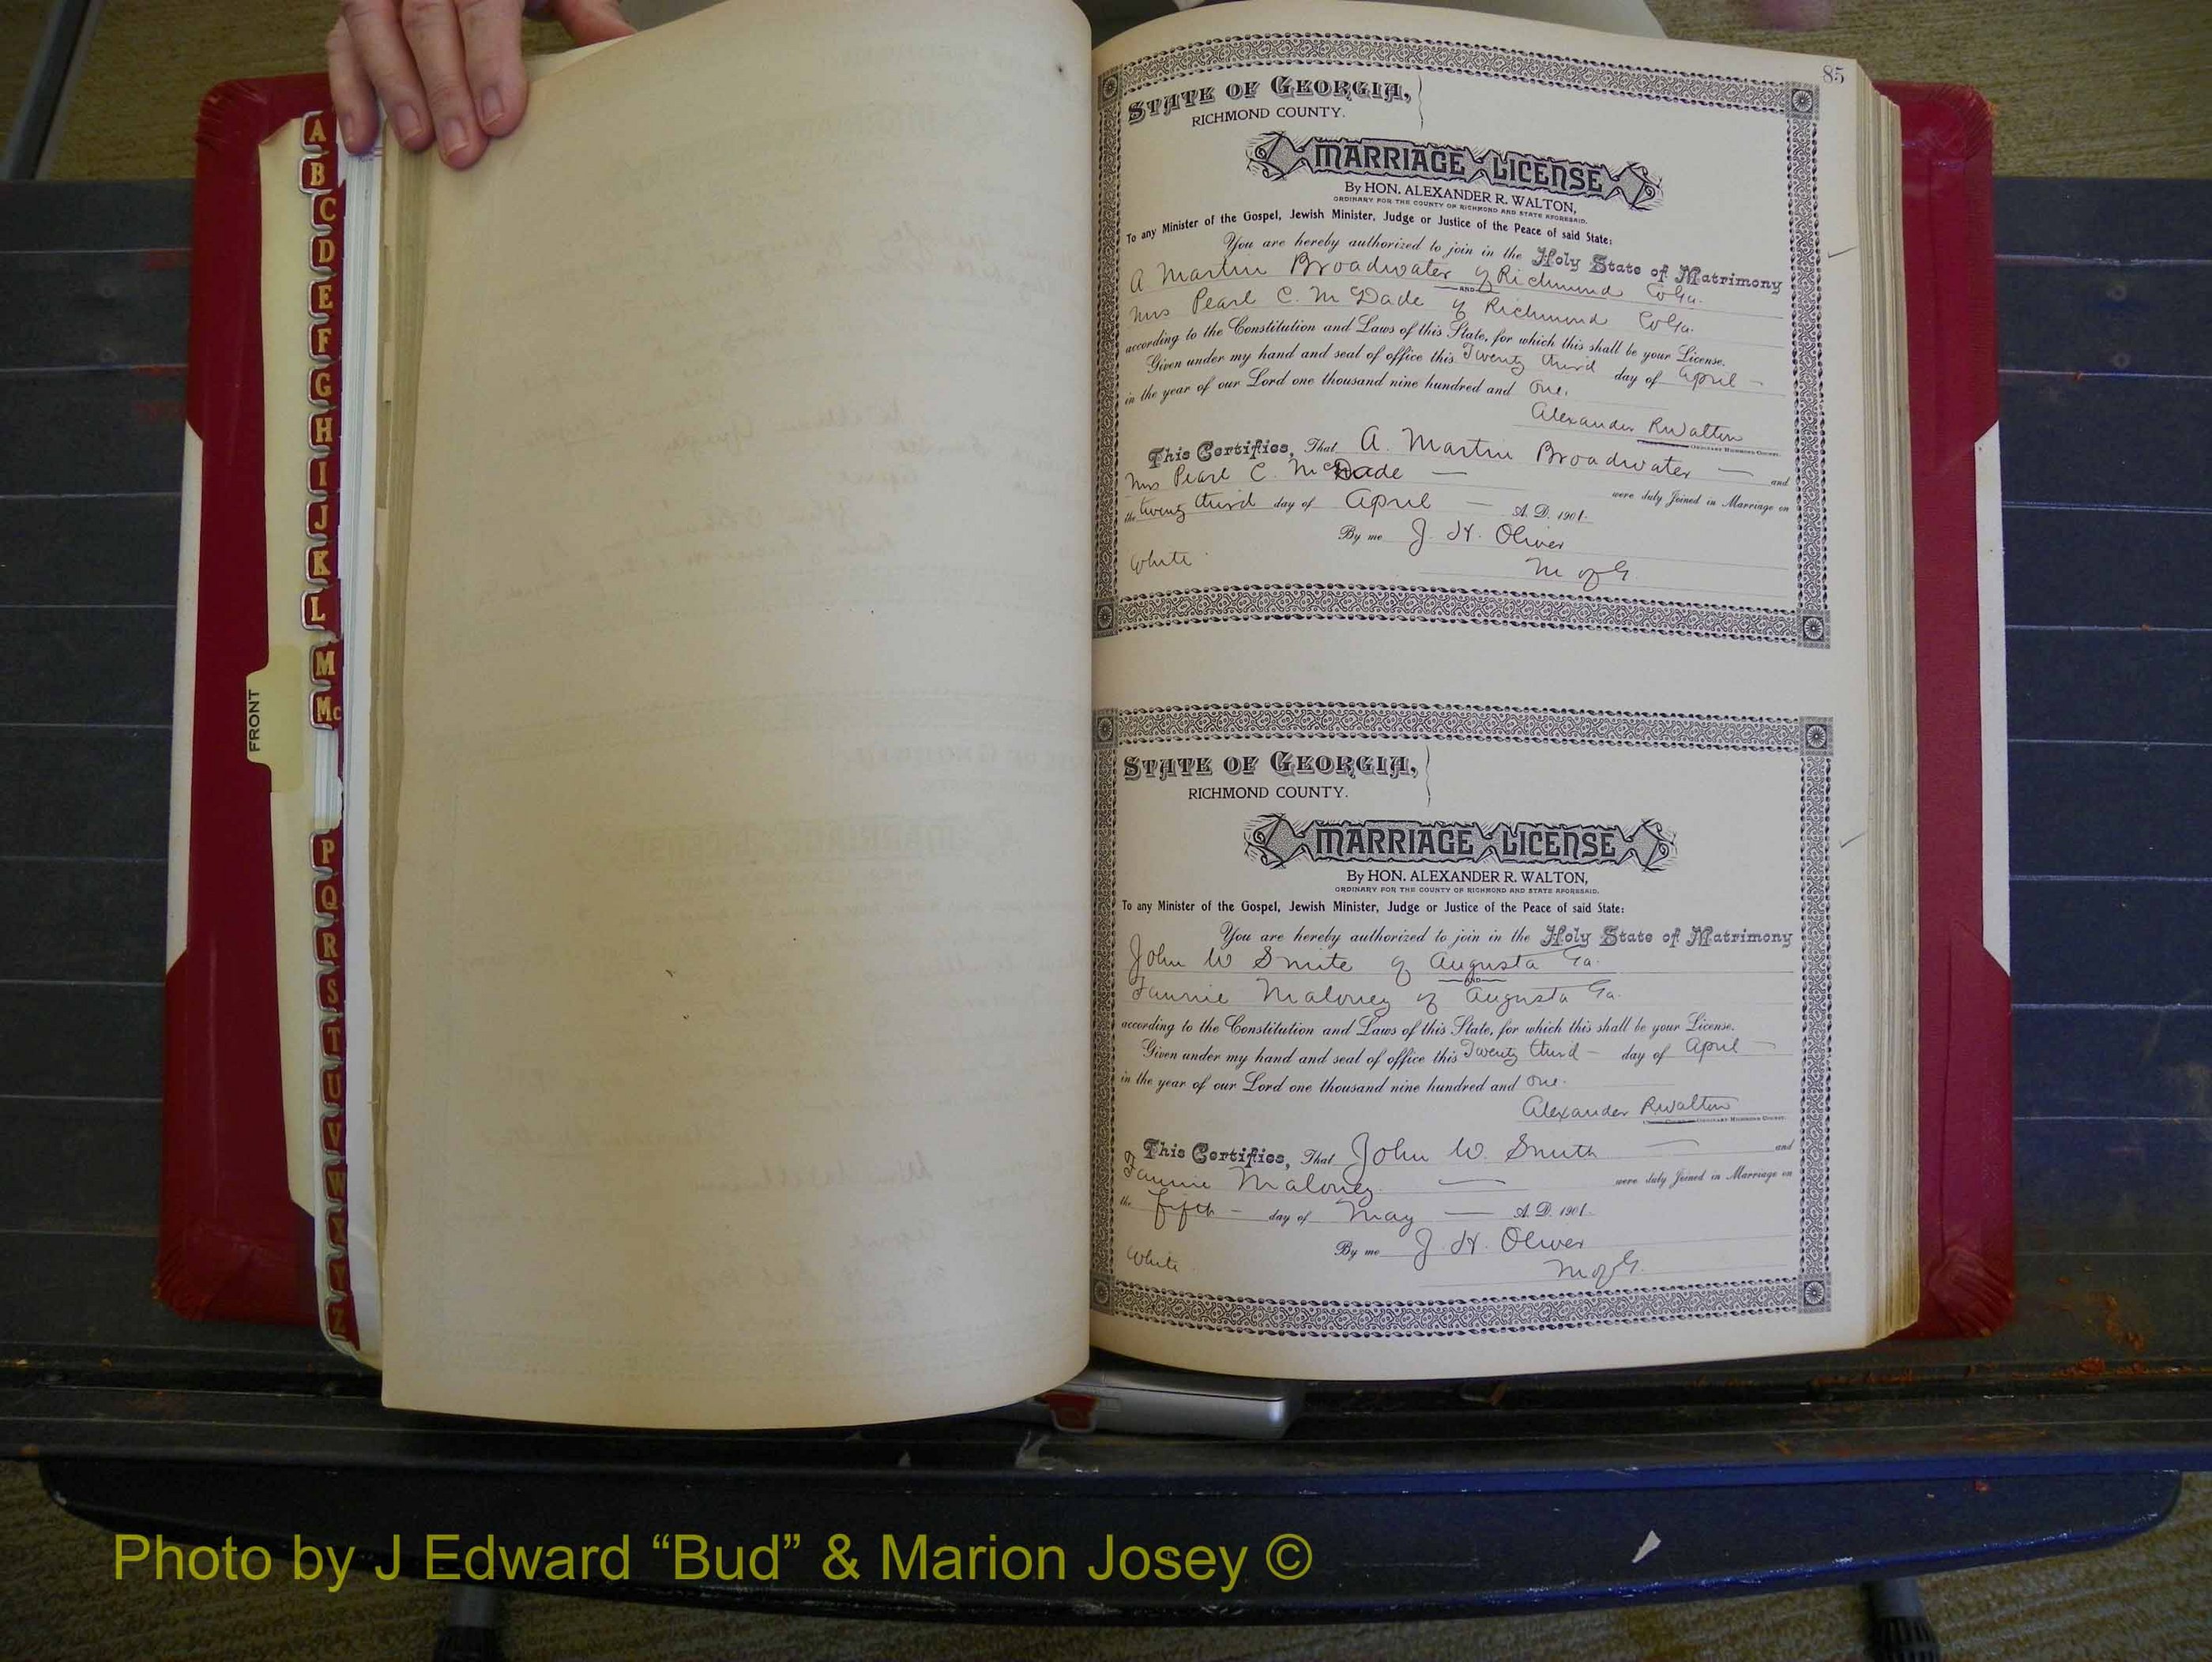 A
B
C
D
E
F
G
H
I
J
K
L
M
Mc
P
Q
R
S
T
U
V
W
X
Y
Z
FRONT
85
STATE OF GEORGIA,
RICHMOND COUNTY.
MARRIAGE LICENSE
By HON. ALEXANDER R. WALTON,
ORDINARY FOR THE COUNTY OF RICHMOND AND STATE AFORESAID.
To any Minister of the Gospel, Jewish Minister, Judge or Justice of the Peace of said State:
You are hereby authorized to join in the Holy State of Matrimony
A Martin Broadwater of Richmond Co Ga.
AND
Mrs Pearl C. McDade of Richmond Co Ga.
according to the Constitution and Laws of this State, for which this shall be your License.
Given under my hand and seal of office this Twenty third day of April
in the year of our Lord one thousand nine hundred and one.
Alexander R Walton
ORDINARY RICHMOND COUNTY.
This Certifies, That A. Martin Broadwater and
Mrs Pearl C. McDade were duly Joined in Marriage on
the twenty third day of April A. D. 1901.
By me J. H. Oliver
White M of G.
STATE OF GEORGIA,
RICHMOND COUNTY.
MARRIAGE LICENSE
By HON. ALEXANDER R. WALTON,
ORDINARY FOR THE COUNTY OF RICHMOND AND STATE AFORESAID.
To any Minister of the Gospel, Jewish Minister, Judge or Justice of the Peace of said State:
You are hereby authorized to join in the Holy State of Matrimony
John W Smith of Augusta Ga.
AND
Fannie Maloney of Augusta Ga.
according to the Constitution and Laws of this State, for which this shall be your License.
Given under my hand and seal of office this Twenty third day of April
in the year of our Lord one thousand nine hundred and one.
Alexander R Walton
ORDINARY RICHMOND COUNTY.
This Certifies, That John W. Smith and
Fannie Maloney were duly Joined in Marriage on
the fifth day of May A. D. 1901.
By me J. H. Oliver
White M of G.
Photo by J Edward “Bud” & Marion Josey ©